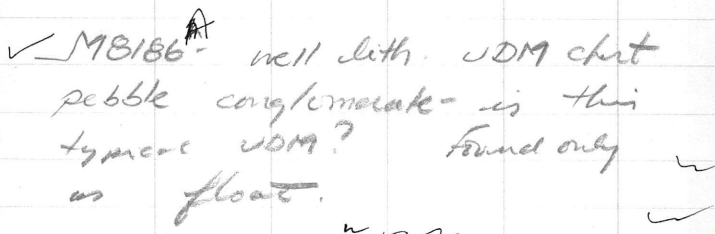 ✓ M8186A - well lith. UDM chert
pebble conglomerate - is this
typical UDM? Found only
as float.